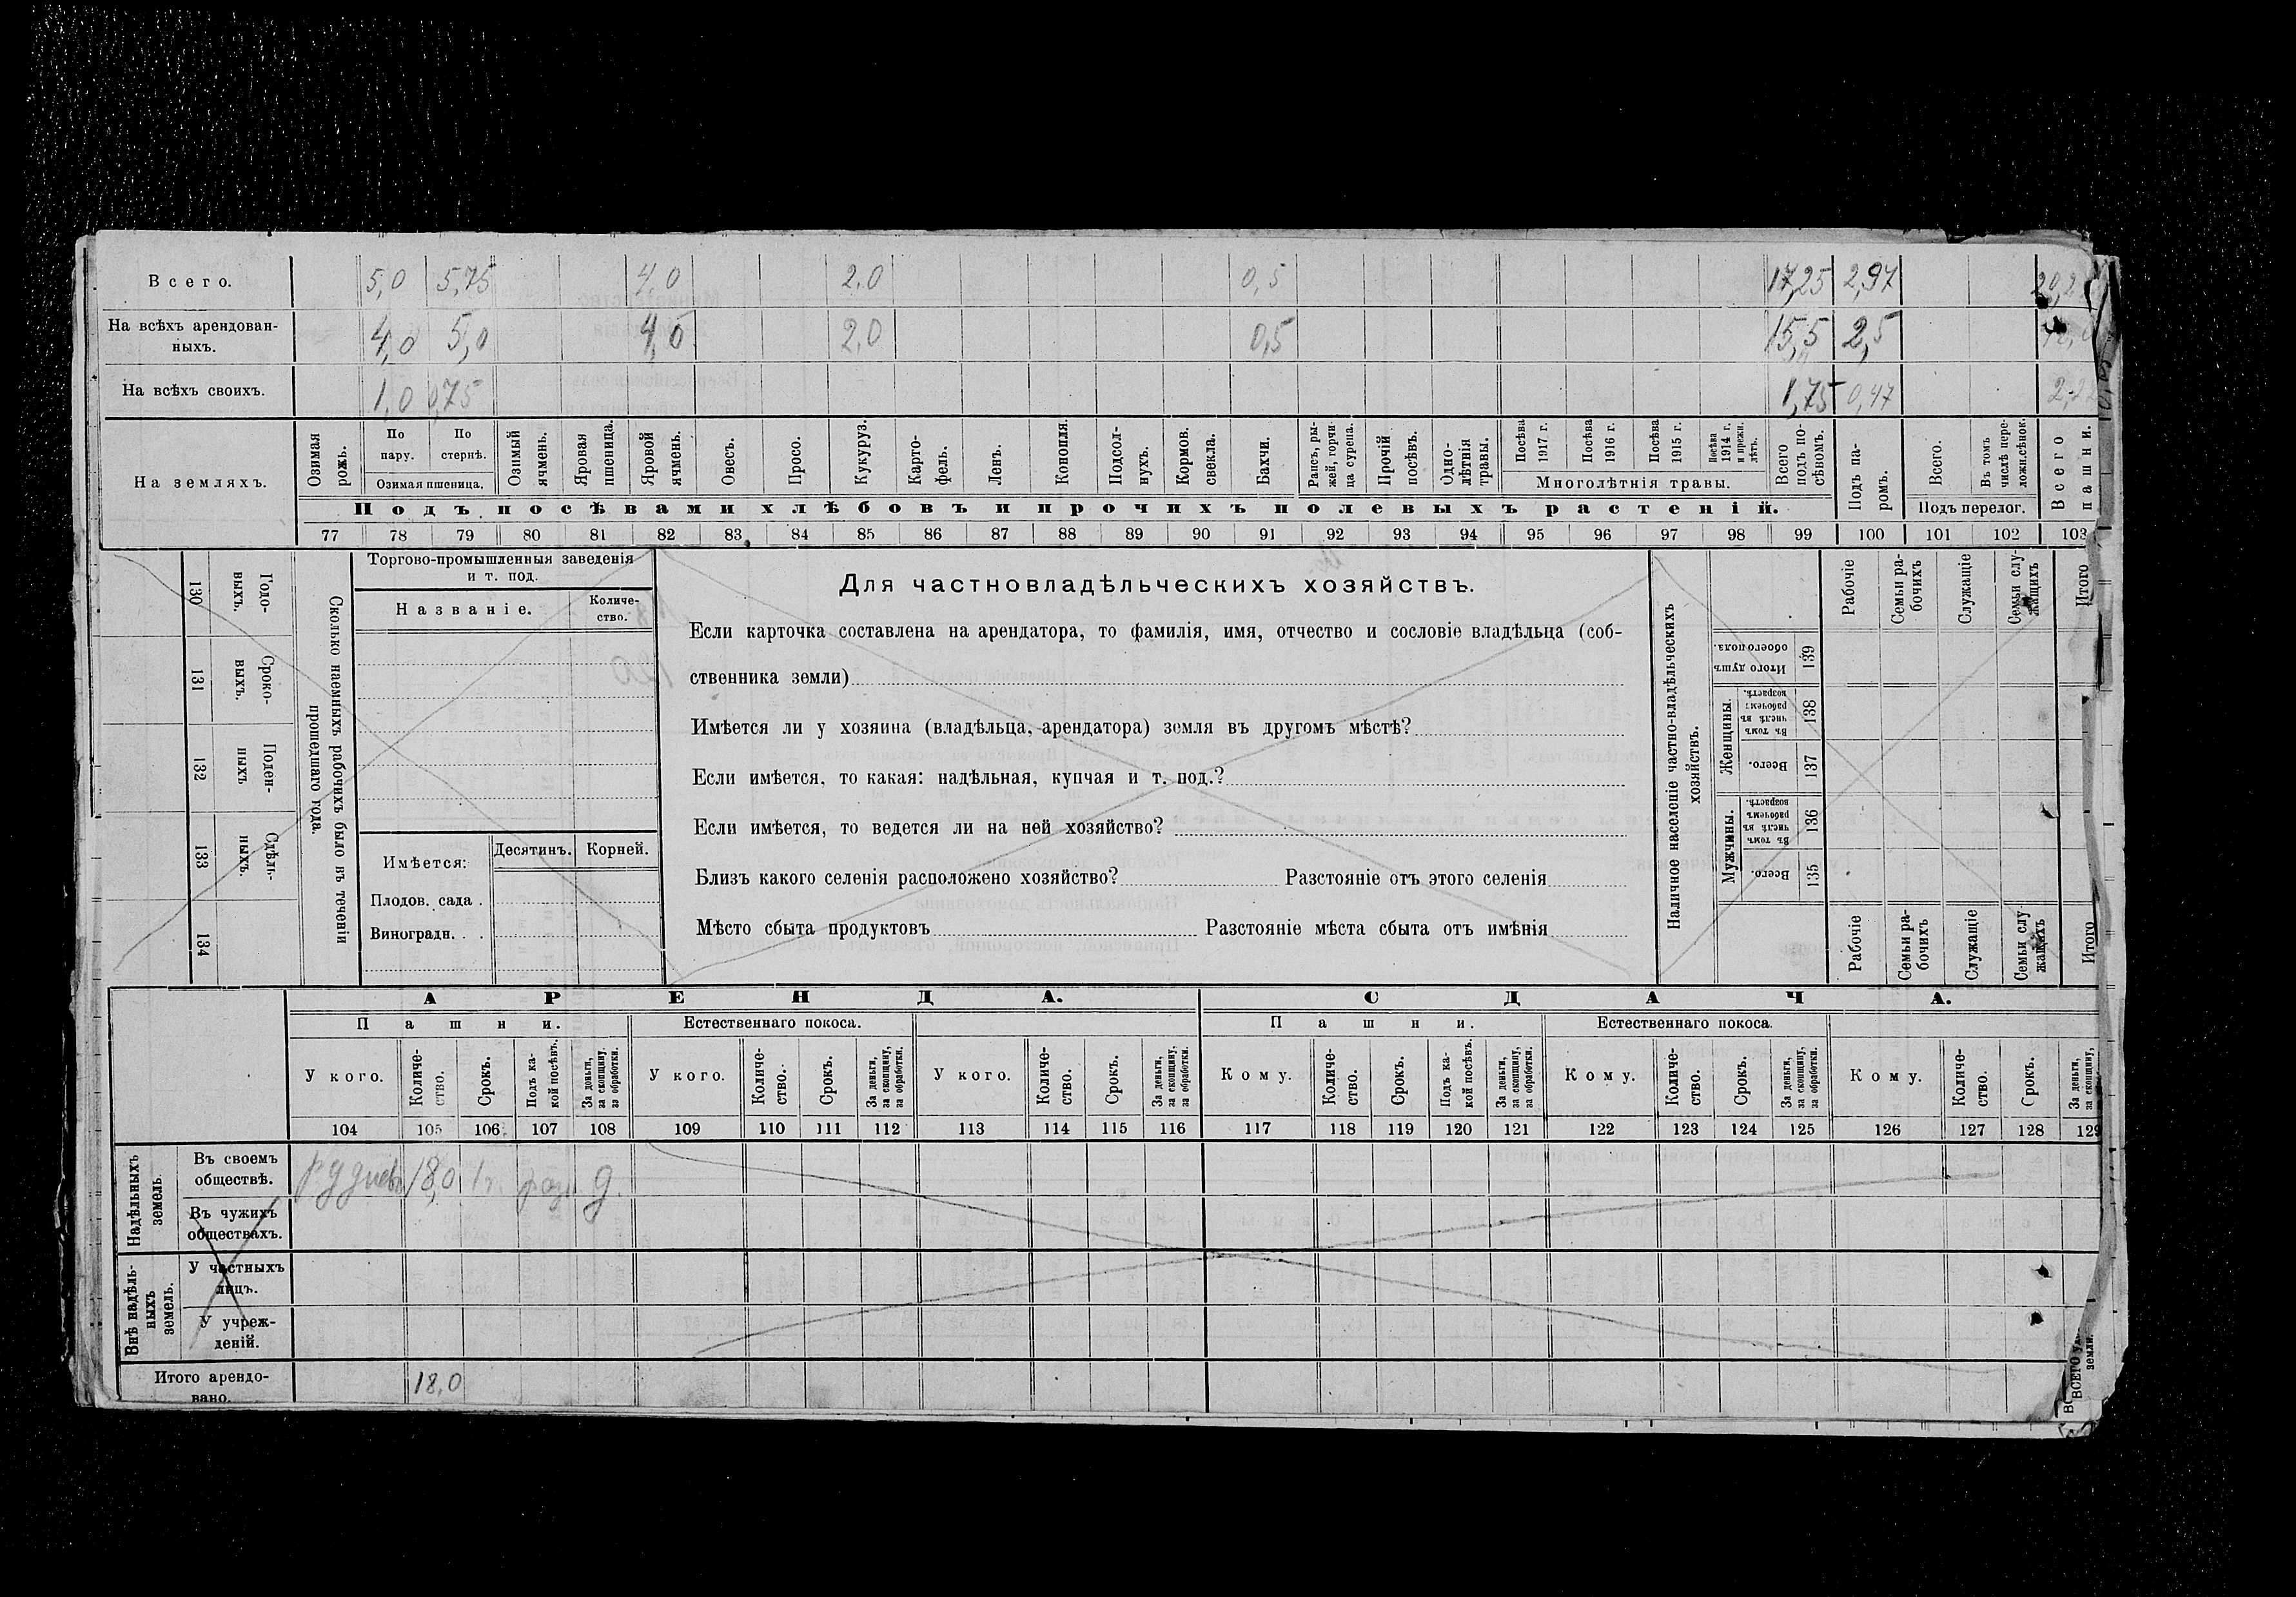 Всего. 5,0 5,75 4,0 2,0 0,5 17,25 2,97
На всѣхъ арендован-
ныхъ. 4,0 5,0 4,0 2,0 0,5 15,5 2,5
На всѣхъ своихъ. 1,0 0,75 1,75 0,47
На земляхъ.
Озимая рожь.
По пару.
По стернѣ.
Озимая пшеница.
Озимый ячмень.
Яровая пшеница.
Яровой ячмень.
Овесъ.
Просо.
Кукуруз.
Карто-
фель.
Ленъ.
Конопля.
Подсол-
нухъ.
Кормов.
свекла.
Бахчи.
Рапсъ, ры-
жей, горчи-
ца сурепа.
Прочій
посѣвъ.
Одно-
лѣтнія
травы.
Посѣва
1917 г.
Посѣва
1916 г.
Посѣва
1915 г.
Посѣва
1914 г.
и прежн.
лѣтъ.
Многолѣтнія травы.
Всего
подъ по-
сѣвомъ.
Подъ па-
ромъ.
Всего.
Въ томъ
числѣ пере-
ложн.сѣнок.
Подъ перелог.
Всего
пашни.
Подъ посѣвами хлѣбовъ и прочихъ полевыхъ растеній.
77 78 79 80 81 82 83 84 85 86 87 88 89 90 91 92 93 94 95 96 97 98 99 100 101 102 103
Сколько наемныхъ рабочихъ было въ теченіи
прошедшаго года.
Годо-
выхъ.
130
Сроко-
выхъ.
131
Поден-
ныхъ
132
Сдѣль-
ныхъ.
133
134
Торгово-промышленныя заведенія
и т. под.
Названіе.
Количе-
ство.
Имѣется:
Десятинъ. Корней.
Плодов. сада .
Виноградн. . .
Для частновладѣльческихъ хозяйствъ.
Если карточка составлена на арендатора, то фамилія, имя, отчество и сословіе владѣльца (соб-
ственника земли)
Имѣется ли у хозяина (владѣльца, арендатора) земля въ другомъ мѣстѣ?
Если имѣется, то какая: надѣльная, купчая и т. под.?
Если имѣется, то ведется ли на ней хозяйство?
Близъ какого селенія расположено хозяйство? Разстояніе отъ этого селенія
Мѣсто сбыта продуктовъ Разстояніе мѣста сбыта отъ имѣнія
Наличное населеніе частно-владѣльческихъ
хозяйствъ.
Рабочіе
Семьи ра-
бочихъ
Служащіе
Семьи слу-
жащихъ
Итого
Итого душъ
обоего пола.
139
Женщины.
Въ томъ
числѣ въ
рабочемъ
возрастѣ.
138
Всего.
137
Мужчины.
Въ томъ
числѣ въ
рабочемъ
возрастѣ.
136
Всего.
135
Рабочіе
Семьи ра-
бочихъ
Служащіе
Семьи слу-
жащихъ
Итого
АРЕНДА. СДАЧА.
Пашни. Естественнаго покоса. Пашни. Естественнаго покоса.
У кого.
Количе-
ство.
Срокъ.
Подъ ка-
кой посѣвъ.
За деньги,
за скопщину,
за обработки.
У кого.
Количе-
ство.
Срокъ.
За деньги,
за скопщину,
за обработки.
У кого.
Количе-
ство.
Срокъ.
За деньги,
за скопщину,
за обработки.
Кому.
Количе-
ство.
Срокъ.
Подъ ка-
кой посѣвъ.
За деньги,
за скопщину,
за обработки.
Кому.
Количе-
ство.
Срокъ.
За деньги,
за скопщину,
за обработки.
Кому.
Количе-
ство.
Срокъ.
За деньги,
за скопщину,
104 105 106 107 108 109 110 111 112 113 114 115 116 117 118 119 120 121 122 123 124 125 126 127 128 129
Надѣльныхъ
земель.
Въ своемъ
обществѣ. 18,0 1 г. д.
Въ чужихъ
обществахъ.
Внѣ надѣль-
ныхъ
земель.
У частныхъ
лицъ.
У учреж-
деній.
Итого арендо-
вано. 18,0
ВСЕГО
земли.